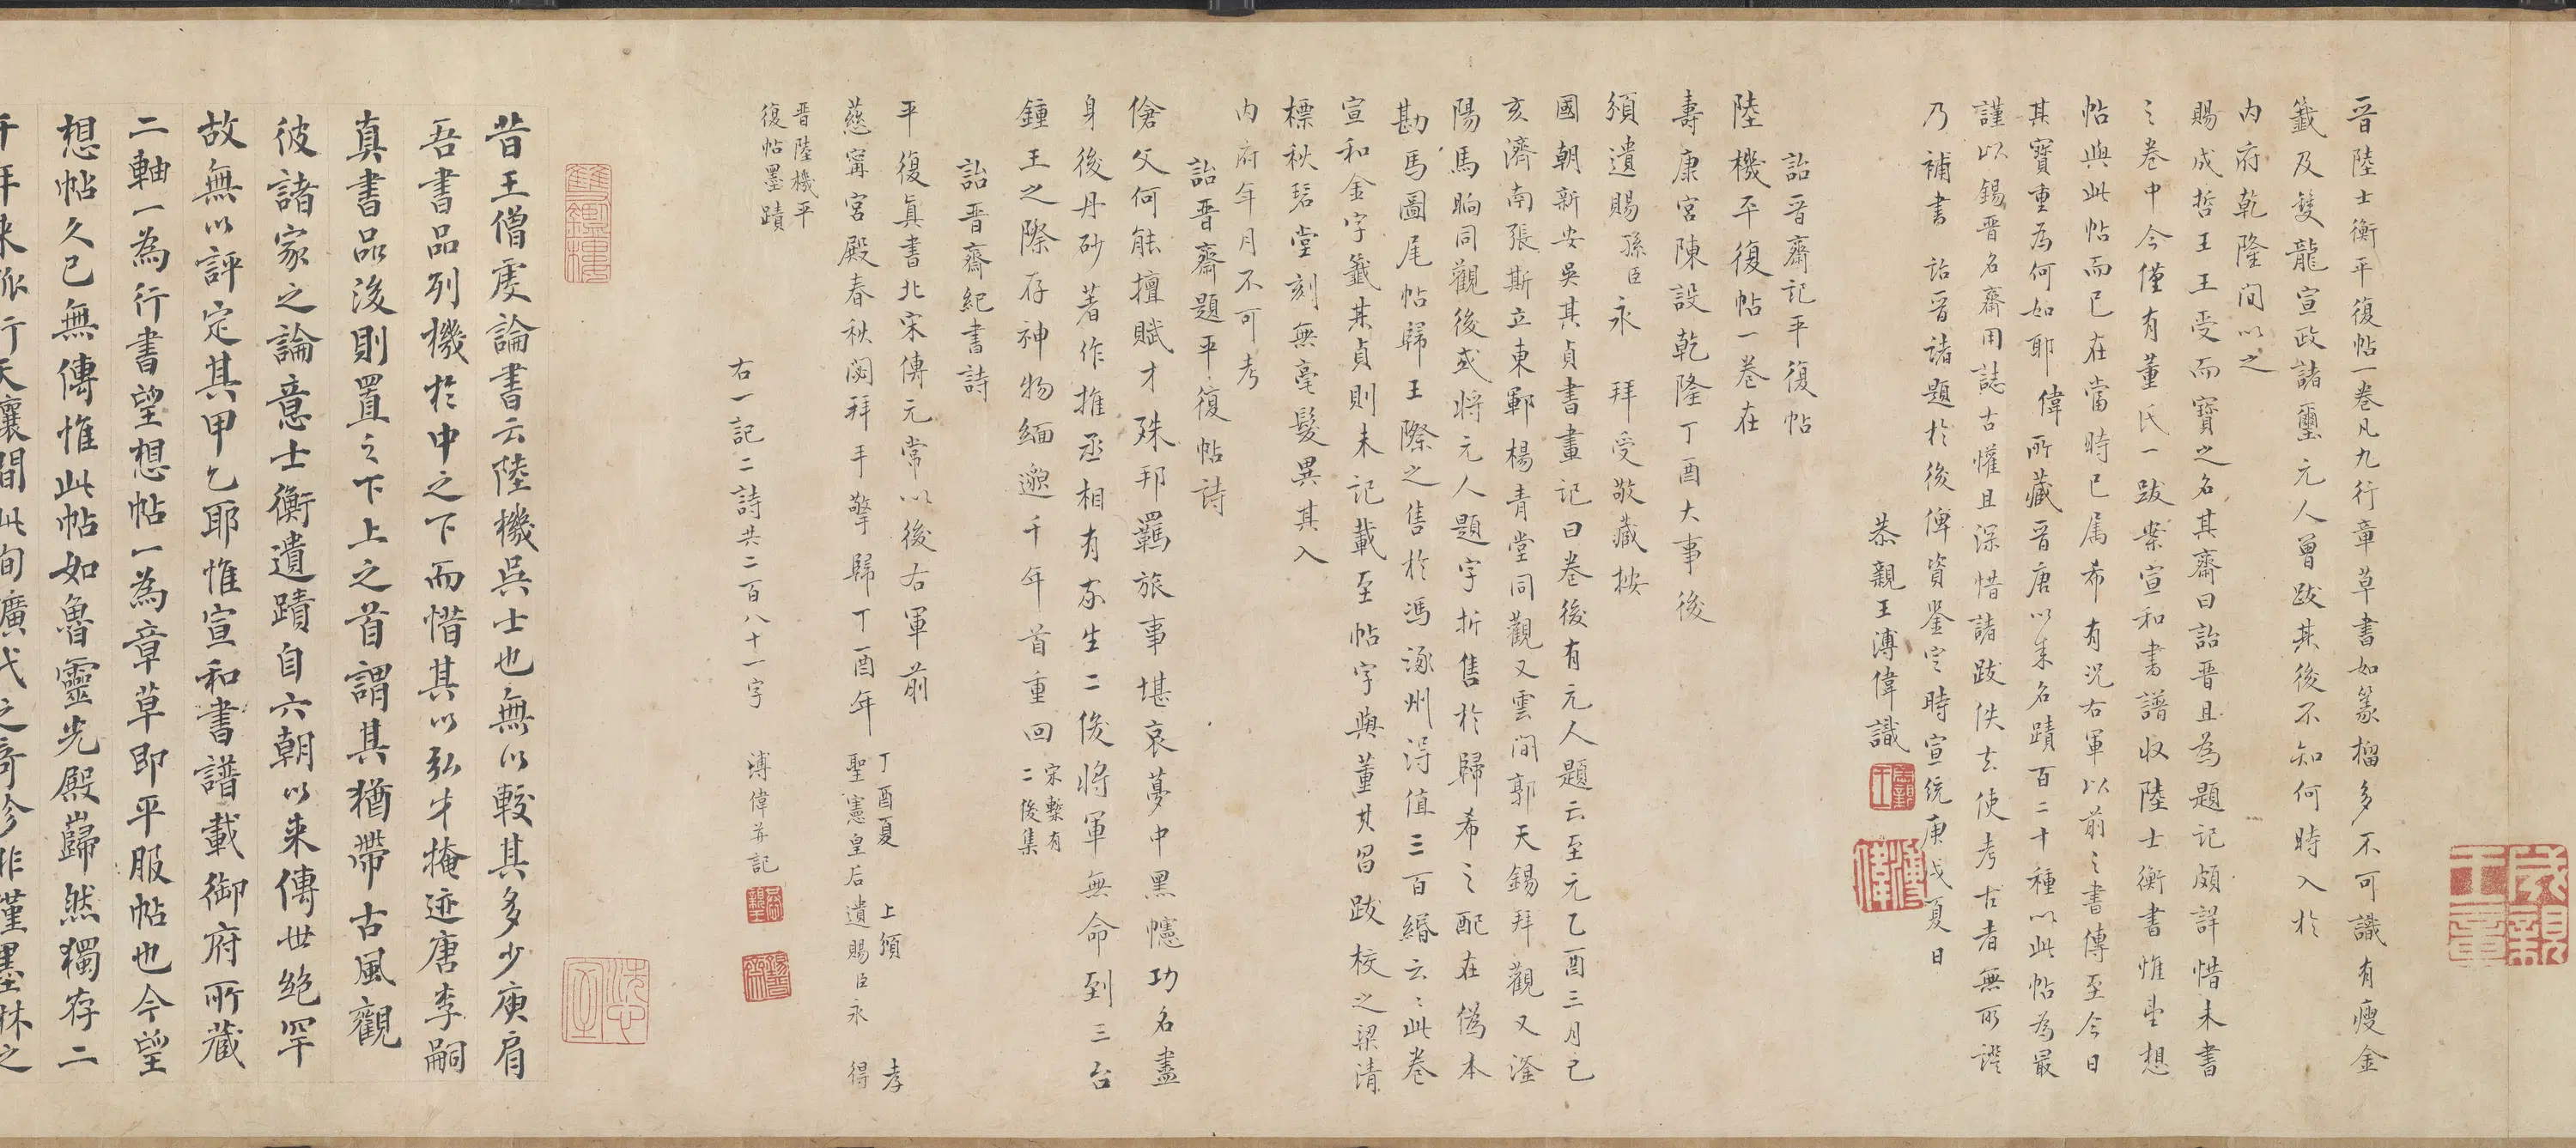 晋陸士衡平復帖一卷凡九行章草書如篆榴多不可識有瘦金
籤及雙龍宣政諸璽元人曾跋其後不知何時入於
内府乾隆間以之
賜成哲王王受而寶之名其齋曰詒晋且為題記頗詳惜未書
之卷中今僅有董氏一跋案宣和書譜収陸士衡書惟此想
帖與此帖而已在當時已属希有况右軍以前之書傳至今日
其寶重為何如耶偉所藏晋唐以来名蹟百二十種以此帖為最
謹以錫晋名齋用誌古懽且深惜諸跋佚去使考古者無所證
乃補書詒晋諸題於後俾資鉴定時宣統庚戌夏日
恭親王溥偉識
詒晋齋記平復帖
陸機平復帖一卷在
壽康宮陳設乾隆丁酉大事後
頒遺賜孫臣永 拜受敬藏按
國朝新安吳其貞書畫記曰卷後有元人題云至元乙酉三月己
亥濟南張斯立東鄆楊青堂同觀又雲間郭天錫拜觀又滏
陽馬昫同觀後或将元人題字折售於歸希之配在偽本
勘馬圖尾帖歸王際之售於馮涿州淂值三百緡云云此卷
宣和金字籤其貞則未記載至帖字與董其昌跋校之梁清
標秋碧堂刻無毫髮異其入
内府年月不可考
詒晋齋題平復帖詩
傖父何能擅賦才殊邦羈旅事堪哀夢中黑幰功名盡
身後丹砂著作推丞相有孫生二俊将軍無命到三台
鍾王之際存神物緬邈千年首重回 宋槧有
二俊集
詒晋齋紀書詩
平復真書北宋傳元常以後右軍前
慈寧宮殿春秋閟拜手擎歸丁酉年 丁酉夏 上頒 孝
聖憲皇后遺賜臣永 得
晋陸機平
復帖墨蹟
右一記二詩共二百八十一字 溥偉并記
昔王僧虔論書云陸機吳士也無以較其多少庾肩
吾書品列機於中之下而惜其以弘才掩迹唐李嗣
真書品後則置之下上之首謂其猶帶古風觀
彼諸家之論意士衡遺蹟自六朝以来傳世絶罕
故無以評定其甲乙耶惟宣和書譜載御府所藏
二軸一為行書望想帖一為章草即平服帖也今望
想帖久已無傳惟此帖如魯靈光殿巋然獨存二
千年来孤行天壤間此洵曠代之奇珍非僅墨林之